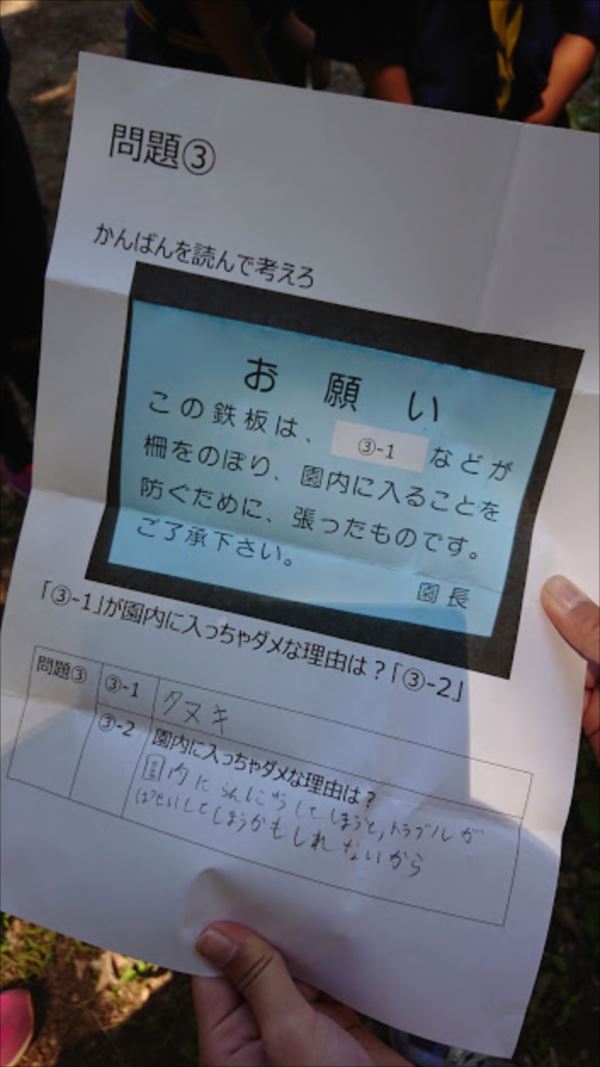 問題③
かんばんを読んで考えろ
お願い
この鉄板は、③-1などが
柵をのぼり、園内に入ることを
防ぐために、張ったものです。
ご了承下さい。
園長
「③-1」が園内に入っちゃダメな理由は?「③-2」
問題③
③-1
タヌキ
③-2
園内に入っちゃダメな理由は?
園内にらんにゅうしてしまうと,トラブルが
はっせいしてしまうかもしれないから